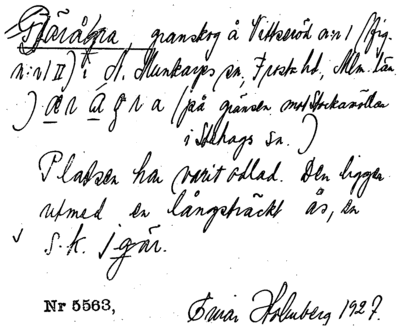 Järågra, granskog å Vittseröd n:r 1 (fig.
n:r 1 II) i N. Munkarps sn, Frosta hd, Mlm. län.
) æ r á g r a (på gränsen mot Stockamöllan
i Stehags sn.)
Platsen har varit odlad. Den ligger
utmed en långsträckt ås, en
s.k. jär.
Nr 5563, Einar Holmberg 1927.